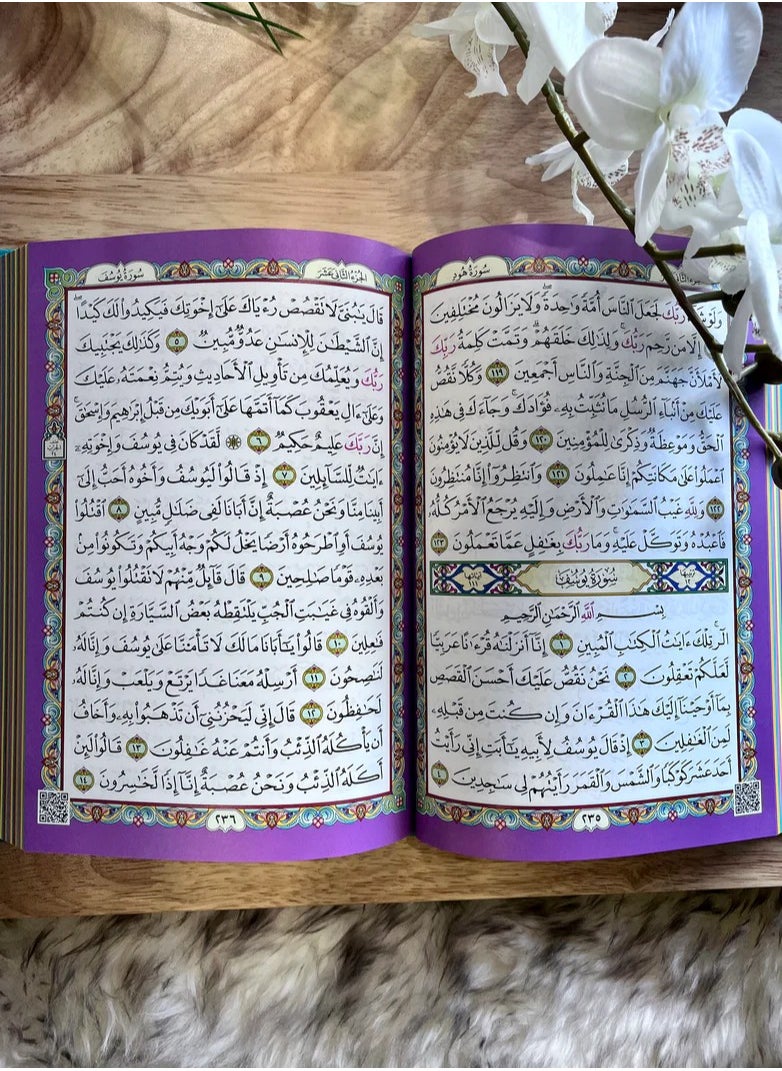 سُورَةُ هُودٍ
وَلَوْ شَآءَ رَبُّكَ لَجَعَلَ ٱلنَّاسَ أُمَّةً وَٰحِدَةً ۖ وَلَا يَزَالُونَ مُخْتَلِفِينَ
إِلَّا مَن رَّحِمَ رَبُّكَ ۚ وَلِذَٰلِكَ خَلَقَهُمْ ۗ وَتَمَّتْ كَلِمَةُ رَبِّكَ
لَأَمْلَأَنَّ جَهَنَّمَ مِنَ ٱلْجِنَّةِ وَٱلنَّاسِ أَجْمَعِينَ ١١٩ وَكُلًّا نَّقُصُّ
عَلَيْكَ مِنْ أَنۢبَآءِ ٱلرُّسُلِ مَا نُثَبِّتُ بِهِۦ فُؤَادَكَ ۚ وَجَآءَكَ فِى هَٰذِهِ
ٱلْحَقُّ وَمَوْعِظَةٌ وَذِكْرَىٰ لِلْمُؤْمِنِينَ ١٢٠ وَقُل لِّلَّذِينَ لَا يُؤْمِنُونَ
ٱعْمَلُوا۟ عَلَىٰ مَكَانَتِكُمْ إِنَّا عَٰمِلُونَ ١٢١ وَٱنتَظِرُوٓا۟ إِنَّا مُنتَظِرُونَ
١٢٢ وَلِلَّهِ غَيْبُ ٱلسَّمَٰوَٰتِ وَٱلْأَرْضِ وَإِلَيْهِ يُرْجَعُ ٱلْأَمْرُ كُلُّهُۥ
فَٱعْبُدْهُ وَتَوَكَّلْ عَلَيْهِ ۚ وَمَا رَبُّكَ بِغَٰفِلٍ عَمَّا تَعْمَلُونَ ١٢٣
ترتيبها ١٢ سُورَةُ يُوسُفَ آياتها ١١١
بِسْمِ ٱللَّهِ ٱلرَّحْمَٰنِ ٱلرَّحِيمِ
الٓر ۚ تِلْكَ ءَايَٰتُ ٱلْكِتَٰبِ ٱلْمُبِينِ ١ إِنَّآ أَنزَلْنَٰهُ قُرْءَٰنًا عَرَبِيًّا
لَّعَلَّكُمْ تَعْقِلُونَ ٢ نَحْنُ نَقُصُّ عَلَيْكَ أَحْسَنَ ٱلْقَصَصِ
بِمَآ أَوْحَيْنَآ إِلَيْكَ هَٰذَا ٱلْقُرْءَانَ وَإِن كُنتَ مِن قَبْلِهِۦ
لَمِنَ ٱلْغَٰفِلِينَ ٣ إِذْ قَالَ يُوسُفُ لِأَبِيهِ يَٰٓأَبَتِ إِنِّى رَأَيْتُ
أَحَدَ عَشَرَ كَوْكَبًا وَٱلشَّمْسَ وَٱلْقَمَرَ رَأَيْتُهُمْ لِى سَٰجِدِينَ ٤
٢٣٥
الجزء الثاني عشر سُورَةُ يُوسُفَ
قَالَ يَٰبُنَىَّ لَا تَقْصُصْ رُءْيَاكَ عَلَىٰٓ إِخْوَتِكَ فَيَكِيدُوا۟ لَكَ كَيْدًا ۖ
إِنَّ ٱلشَّيْطَٰنَ لِلْإِنسَٰنِ عَدُوٌّ مُّبِينٌ ٥ وَكَذَٰلِكَ يَجْتَبِيكَ
رَبُّكَ وَيُعَلِّمُكَ مِن تَأْوِيلِ ٱلْأَحَادِيثِ وَيُتِمُّ نِعْمَتَهُۥ عَلَيْكَ
وَعَلَىٰٓ ءَالِ يَعْقُوبَ كَمَآ أَتَمَّهَا عَلَىٰٓ أَبَوَيْكَ مِن قَبْلُ إِبْرَٰهِيمَ وَإِسْحَٰقَ ۚ
إِنَّ رَبَّكَ عَلِيمٌ حَكِيمٌ ٦ ۞ لَّقَدْ كَانَ فِى يُوسُفَ وَإِخْوَتِهِۦٓ
ءَايَٰتٌ لِّلسَّآئِلِينَ ٧ إِذْ قَالُوا۟ لَيُوسُفُ وَأَخُوهُ أَحَبُّ إِلَىٰٓ
أَبِينَا مِنَّا وَنَحْنُ عُصْبَةٌ إِنَّ أَبَانَا لَفِى ضَلَٰلٍ مُّبِينٍ ٨ ٱقْتُلُوا۟
يُوسُفَ أَوِ ٱطْرَحُوهُ أَرْضًا يَخْلُ لَكُمْ وَجْهُ أَبِيكُمْ وَتَكُونُوا۟ مِنۢ
بَعْدِهِۦ قَوْمًا صَٰلِحِينَ ٩ قَالَ قَآئِلٌ مِّنْهُمْ لَا تَقْتُلُوا۟ يُوسُفَ
وَأَلْقُوهُ فِى غَيَٰبَتِ ٱلْجُبِّ يَلْتَقِطْهُ بَعْضُ ٱلسَّيَّارَةِ إِن كُنتُمْ
فَٰعِلِينَ ١٠ قَالُوا۟ يَٰٓأَبَانَا مَا لَكَ لَا تَأْمَ۫نَّا عَلَىٰ يُوسُفَ وَإِنَّا لَهُۥ
لَنَٰصِحُونَ ١١ أَرْسِلْهُ مَعَنَا غَدًا يَرْتَعْ وَيَلْعَبْ وَإِنَّا لَهُۥ
لَحَٰفِظُونَ ١٢ قَالَ إِنِّى لَيَحْزُنُنِىٓ أَن تَذْهَبُوا۟ بِهِۦ وَأَخَافُ
أَن يَأْكُلَهُ ٱلذِّئْبُ وَأَنتُمْ عَنْهُ غَٰفِلُونَ ١٣ قَالُوا۟ لَئِنْ
أَكَلَهُ ٱلذِّئْبُ وَنَحْنُ عُصْبَةٌ إِنَّآ إِذًا لَّخَٰسِرُونَ ١٤
٢٣٦